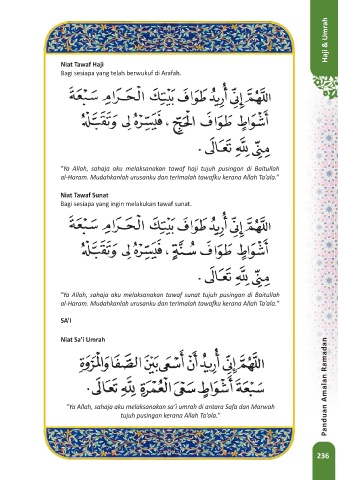 Haji & Umrah
Niat Tawaf Haji
Bagi sesiapa yang telah berwukuf di Arafah.
اَللّٰهُمَّ إِنِّي أُرِيْدُ طَوَافَ بَيْتِكَ الْحَرَامِ سَبْعَةَ
أَشْوَاطٍ طَوَافَ الْحَجِّ ، فَيَسِّرْهُ لِي وَتَقَبَّلْهُ
مِنِّي لِلَّهِ تَعَالَى .
"Ya Allah, sahaja aku melaksanakan tawaf haji tujuh pusingan di Baitullah
al-Haram. Mudahkanlah urusanku dan terimalah tawafku kerana Allah Ta'ala."
Niat Tawaf Sunat
Bagi sesiapa yang ingin melakukan tawaf sunat.
اَللّٰهُمَّ إِنِّي أُرِيْدُ طَوَافَ بَيْتِكَ الْحَرَامِ سَبْعَةَ
أَشْوَاطٍ طَوَافَ سُنَّةٍ ، فَيَسِّرْهُ لِي وَتَقَبَّلْهُ
مِنِّي لِلَّهِ تَعَالَى .
"Ya Allah, sahaja aku melaksanakan tawaf sunat tujuh pusingan di Baitullah
al-Haram. Mudahkanlah urusanku dan terimalah tawafku kerana Allah Ta'ala."
SA'I
Niat Sa'i Umrah
اَللّٰهُمَّ إِنِّي أُرِيْدُ أَنْ أَسْعَى بَيْنَ الصَّفَا وَالْمَرْوَةِ
سَبْعَةَ أَشْوَاطٍ سَعْيَ الْعُمْرَةِ لِلَّهِ تَعَالَى .
"Ya Allah, sahaja aku melaksanakan sa'i umrah di antara Safa dan Marwah
tujuh pusingan kerana Allah Ta'ala."
Panduan Amalan Ramadan
236